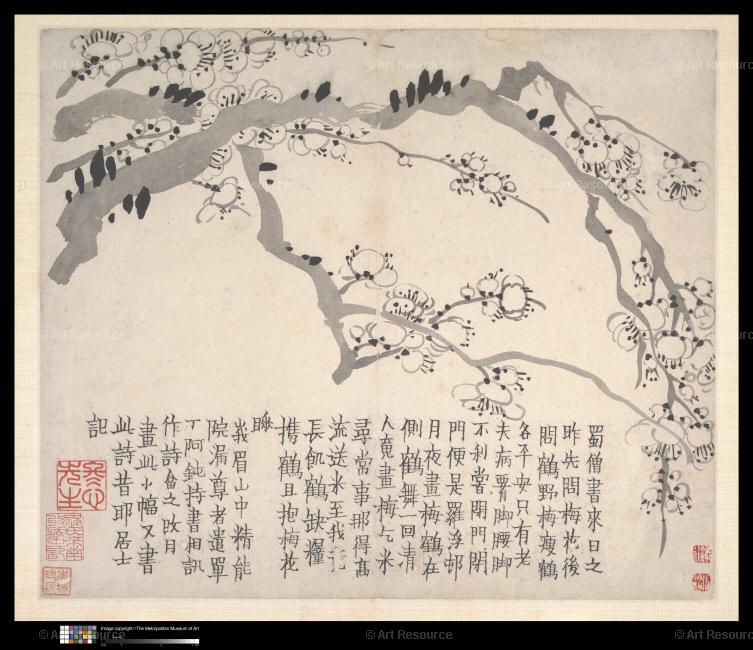 蜀僧書來日之
昨先問梅花後
問鶴野梅瘦鶴
各平安只有老
夫病腰脚腰脚
不利嘗閉門閉
門便是羅浮邨
月夜畫梅鶴在
側鶴舞一回清
人魂畫梅乞米
尋常事那得高
流送米至我竟
長飢鶴缺糧
携鶴且抱梅花
睡
峩眉山中精能
院漏尊者遣單
丁阿鈍持書相訊
作詩畣之改月
畫此小幅又書
此詩昔耶居士
記
冬心
先生
Image copyright ©The Metropolitan Museum of Art
© Art Resource
© Art Resource
© Art Resource